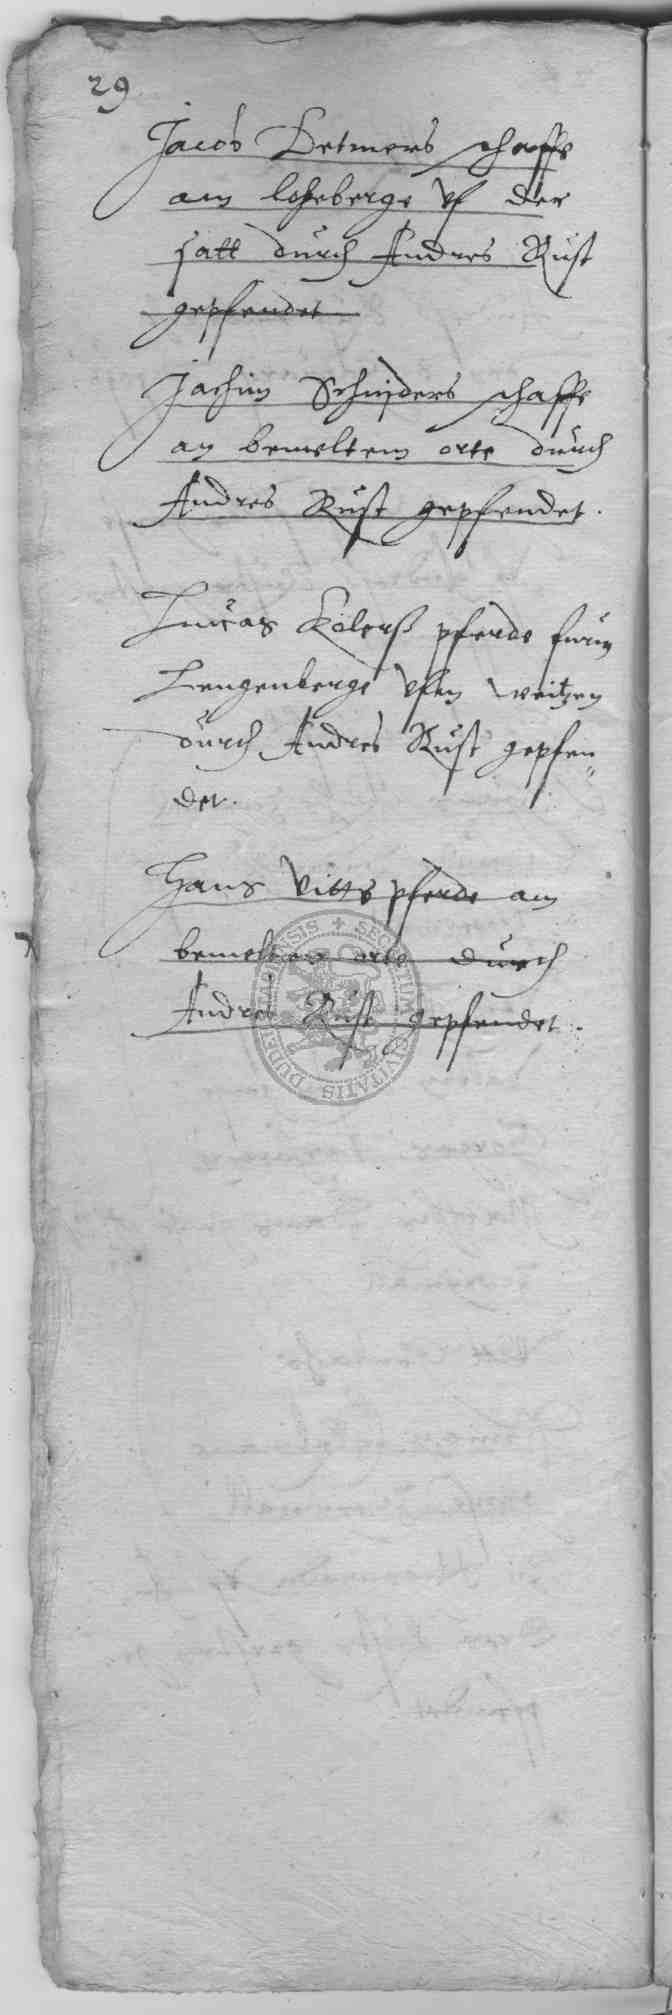 29
Jacob Detmers schaffe
am loheberge vf der
satt durch Andres Rust
gepfendet
Jachim Schnyders schaffe
an bemeltem orte durch
Andres Rust gepfendet.
Lucas Kolerß pferde furm
Lengenberge vfm weitzen
durch Andres Rust gepfen„
det.
Hans Vitts pferde am
bemelten orte durch
Andres Rust gepfendet.
SECRETUM CIVITATIS DUDERSTADIENSIS